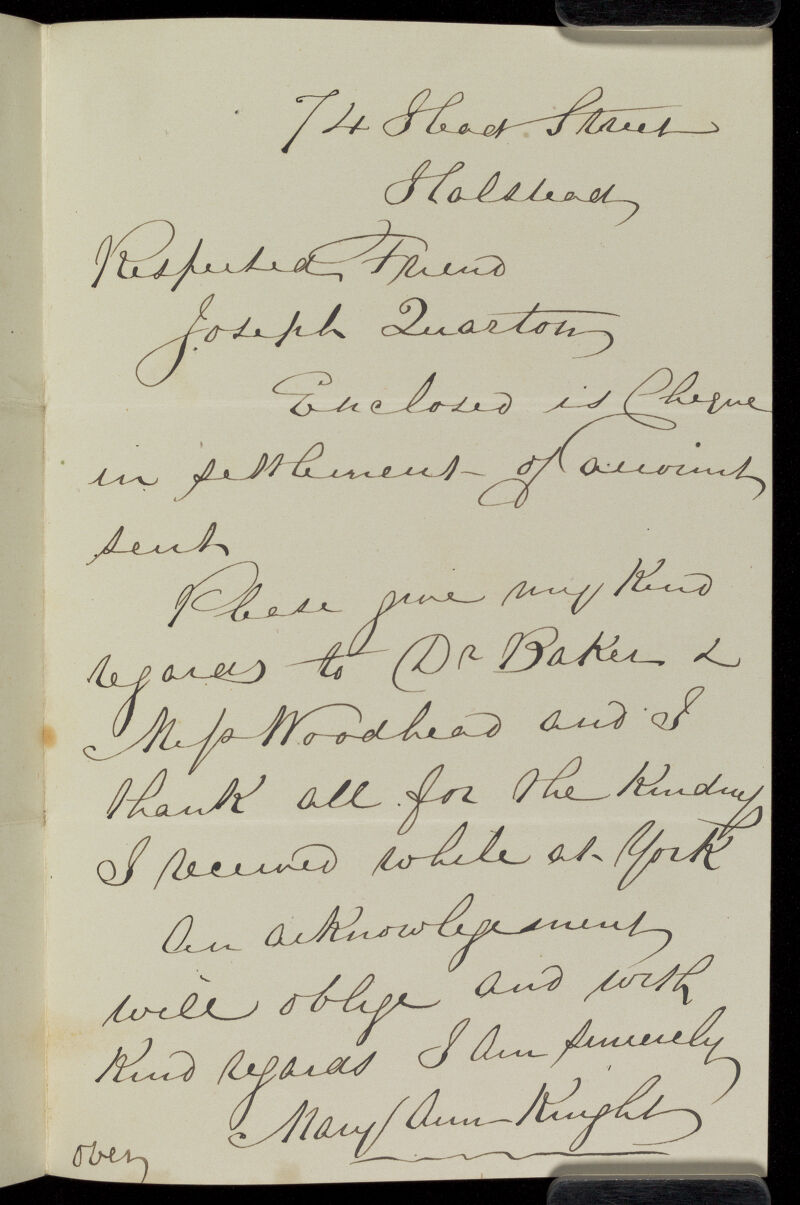 74 Head Street
Halstead
Respected Friend
Joseph Quarton
Enclosed is Cheque
in settlement of account
sent
Please give my Kind
regards to Dr Baker &
Miss Woodhead and I
thank all for the Kindness
I received while at York
An acknowlegement
will oblige and with
Kind regards I am sincerely
Mary Ann Knight
over